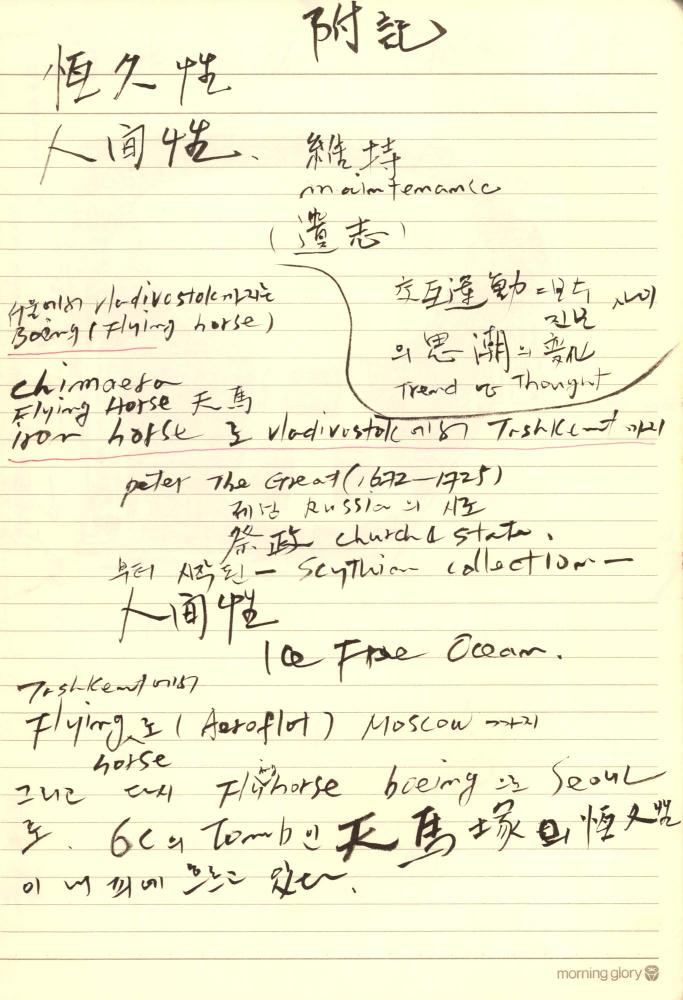 附記
恒久性
人间性、 維持
maintenance
(遺志)
서울에서 vladivostok까지는
Boeing (Flying horse)
交互運動 = 보수 사이
진보
의 思潮의 変化
Trend of Thought
chimaera
Flying Horse 天馬
iron horse 로 vladivostok에서 Tashkent까지
peter The Great (1672—1725)
제난 Russia의 시조
祭政 church & state.
부터 시작된 — Scythian collection —
人间性
Ice Free Ocean.
Tashkent에서
Flying 로 (Aeroflot) Moscow 까지
horse
그리고 다시 Flying horse boeing 으로 Seoul
로. 6C의 Tomb인 天馬塚의 恒久性
이 내 피에 흐르고 있다.
morning glory